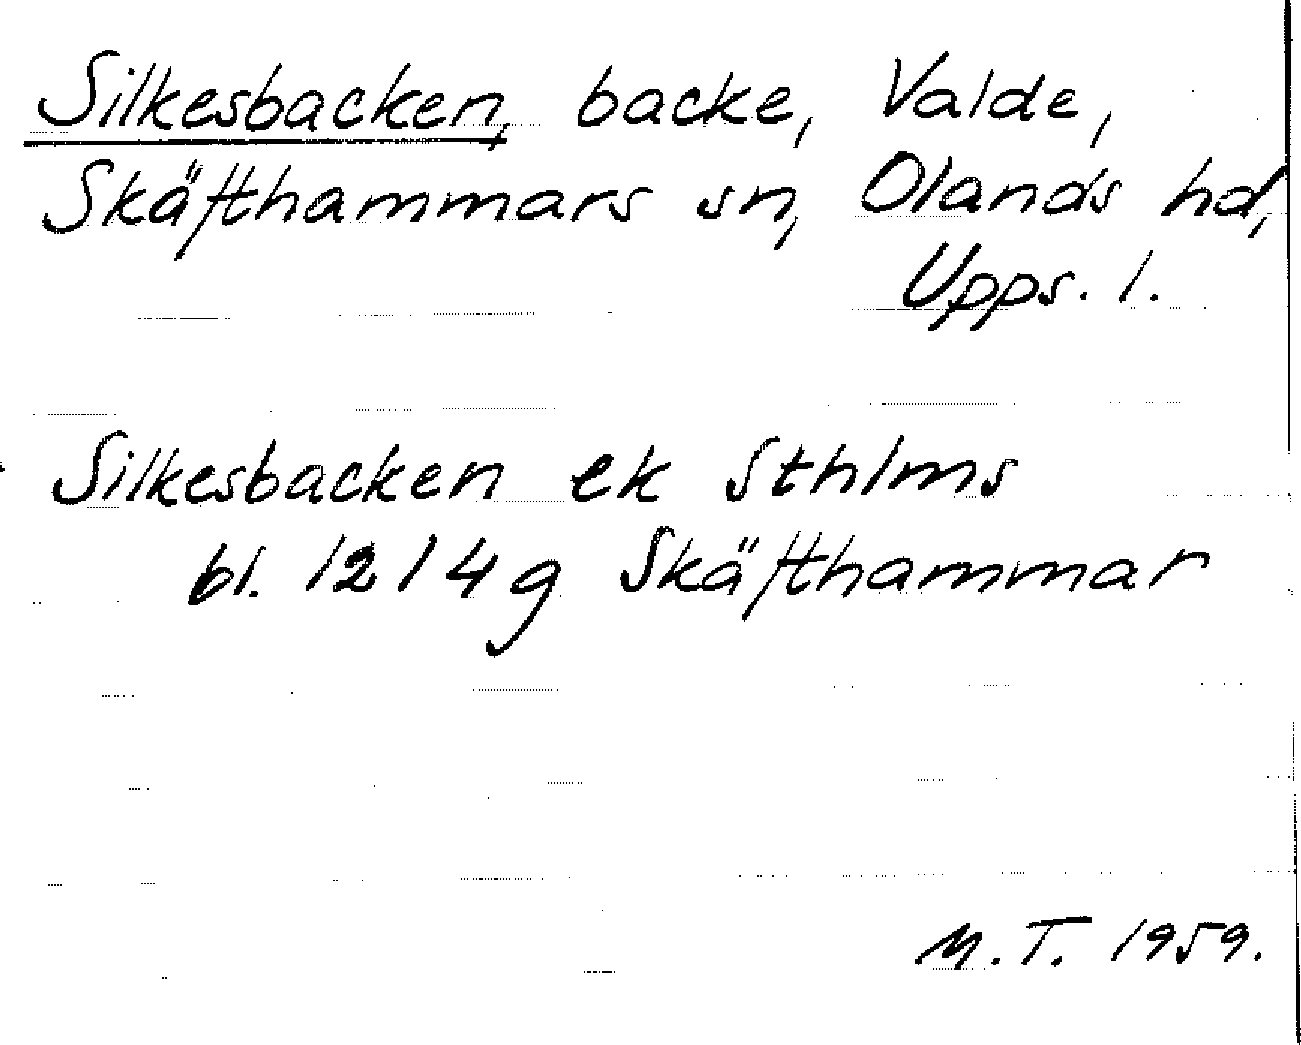 Silkesbacken, backe, Valde,
Skäfthammars sn, Olands hd,
Upps. l.
Silkesbacken ek Sthlms
bl. 1214g Skäfthammar
M.T. 1959.